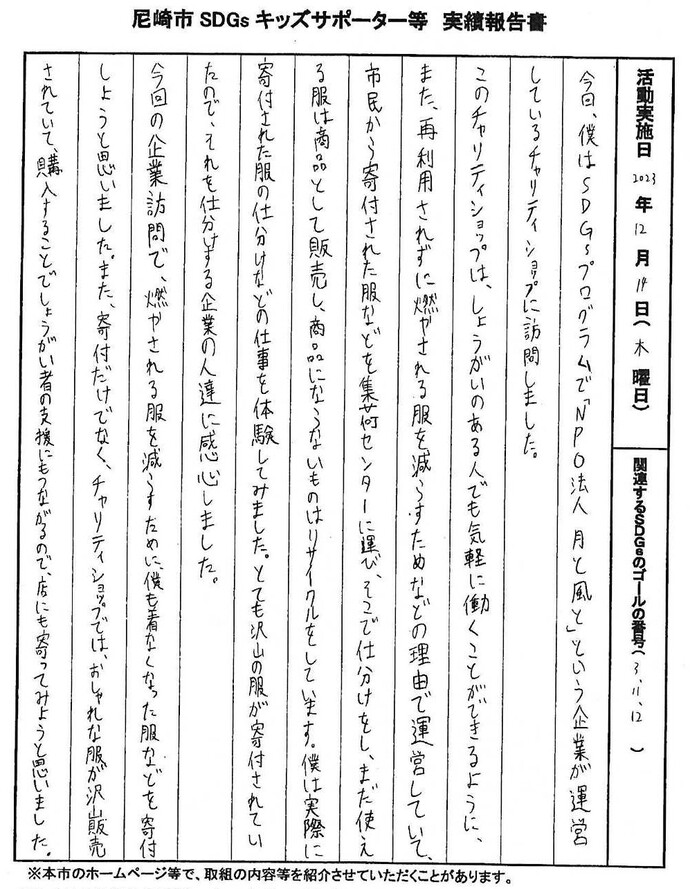 尼崎市 SDGs キッズサポーター等 実績報告書
活動実施日 2023 年 12 月 14 日( 木 曜日)
関連するSDGsのゴールの番号( 3、11、12 )
今日、僕はSDGsプログラムで「NPO法人 月と風と」という企業が運営
しているチャリティショップに訪問しました。
このチャリティショップは、しょうがいのある人でも気軽に働くことができるように、
また、再利用されずに燃やされる服を減らすためなどの理由で運営していて、
市民から寄付された服などを集荷センターに運び、そこで仕分けをし、まだ使え
る服は商品として販売し、商品にならないものはリサイクルをしています。僕は実際に
寄付された服の仕分けなどの仕事を体験してみました。とても沢山の服が寄付されてい
たので、それを仕分けする企業の人達に感心しました。
今回の企業訪問で、燃やされる服を減らすために、僕も着なくなった服などを寄付
しようと思いました。また、寄付だけでなく、チャリティショップでは、おしゃれな服が沢山販売
されていて、購入することでしょうがい者の支援にもつながるので、店にも寄ってみようと思いました。
※本市のホームページ等で、取組の内容等を紹介させていただくことがあります。